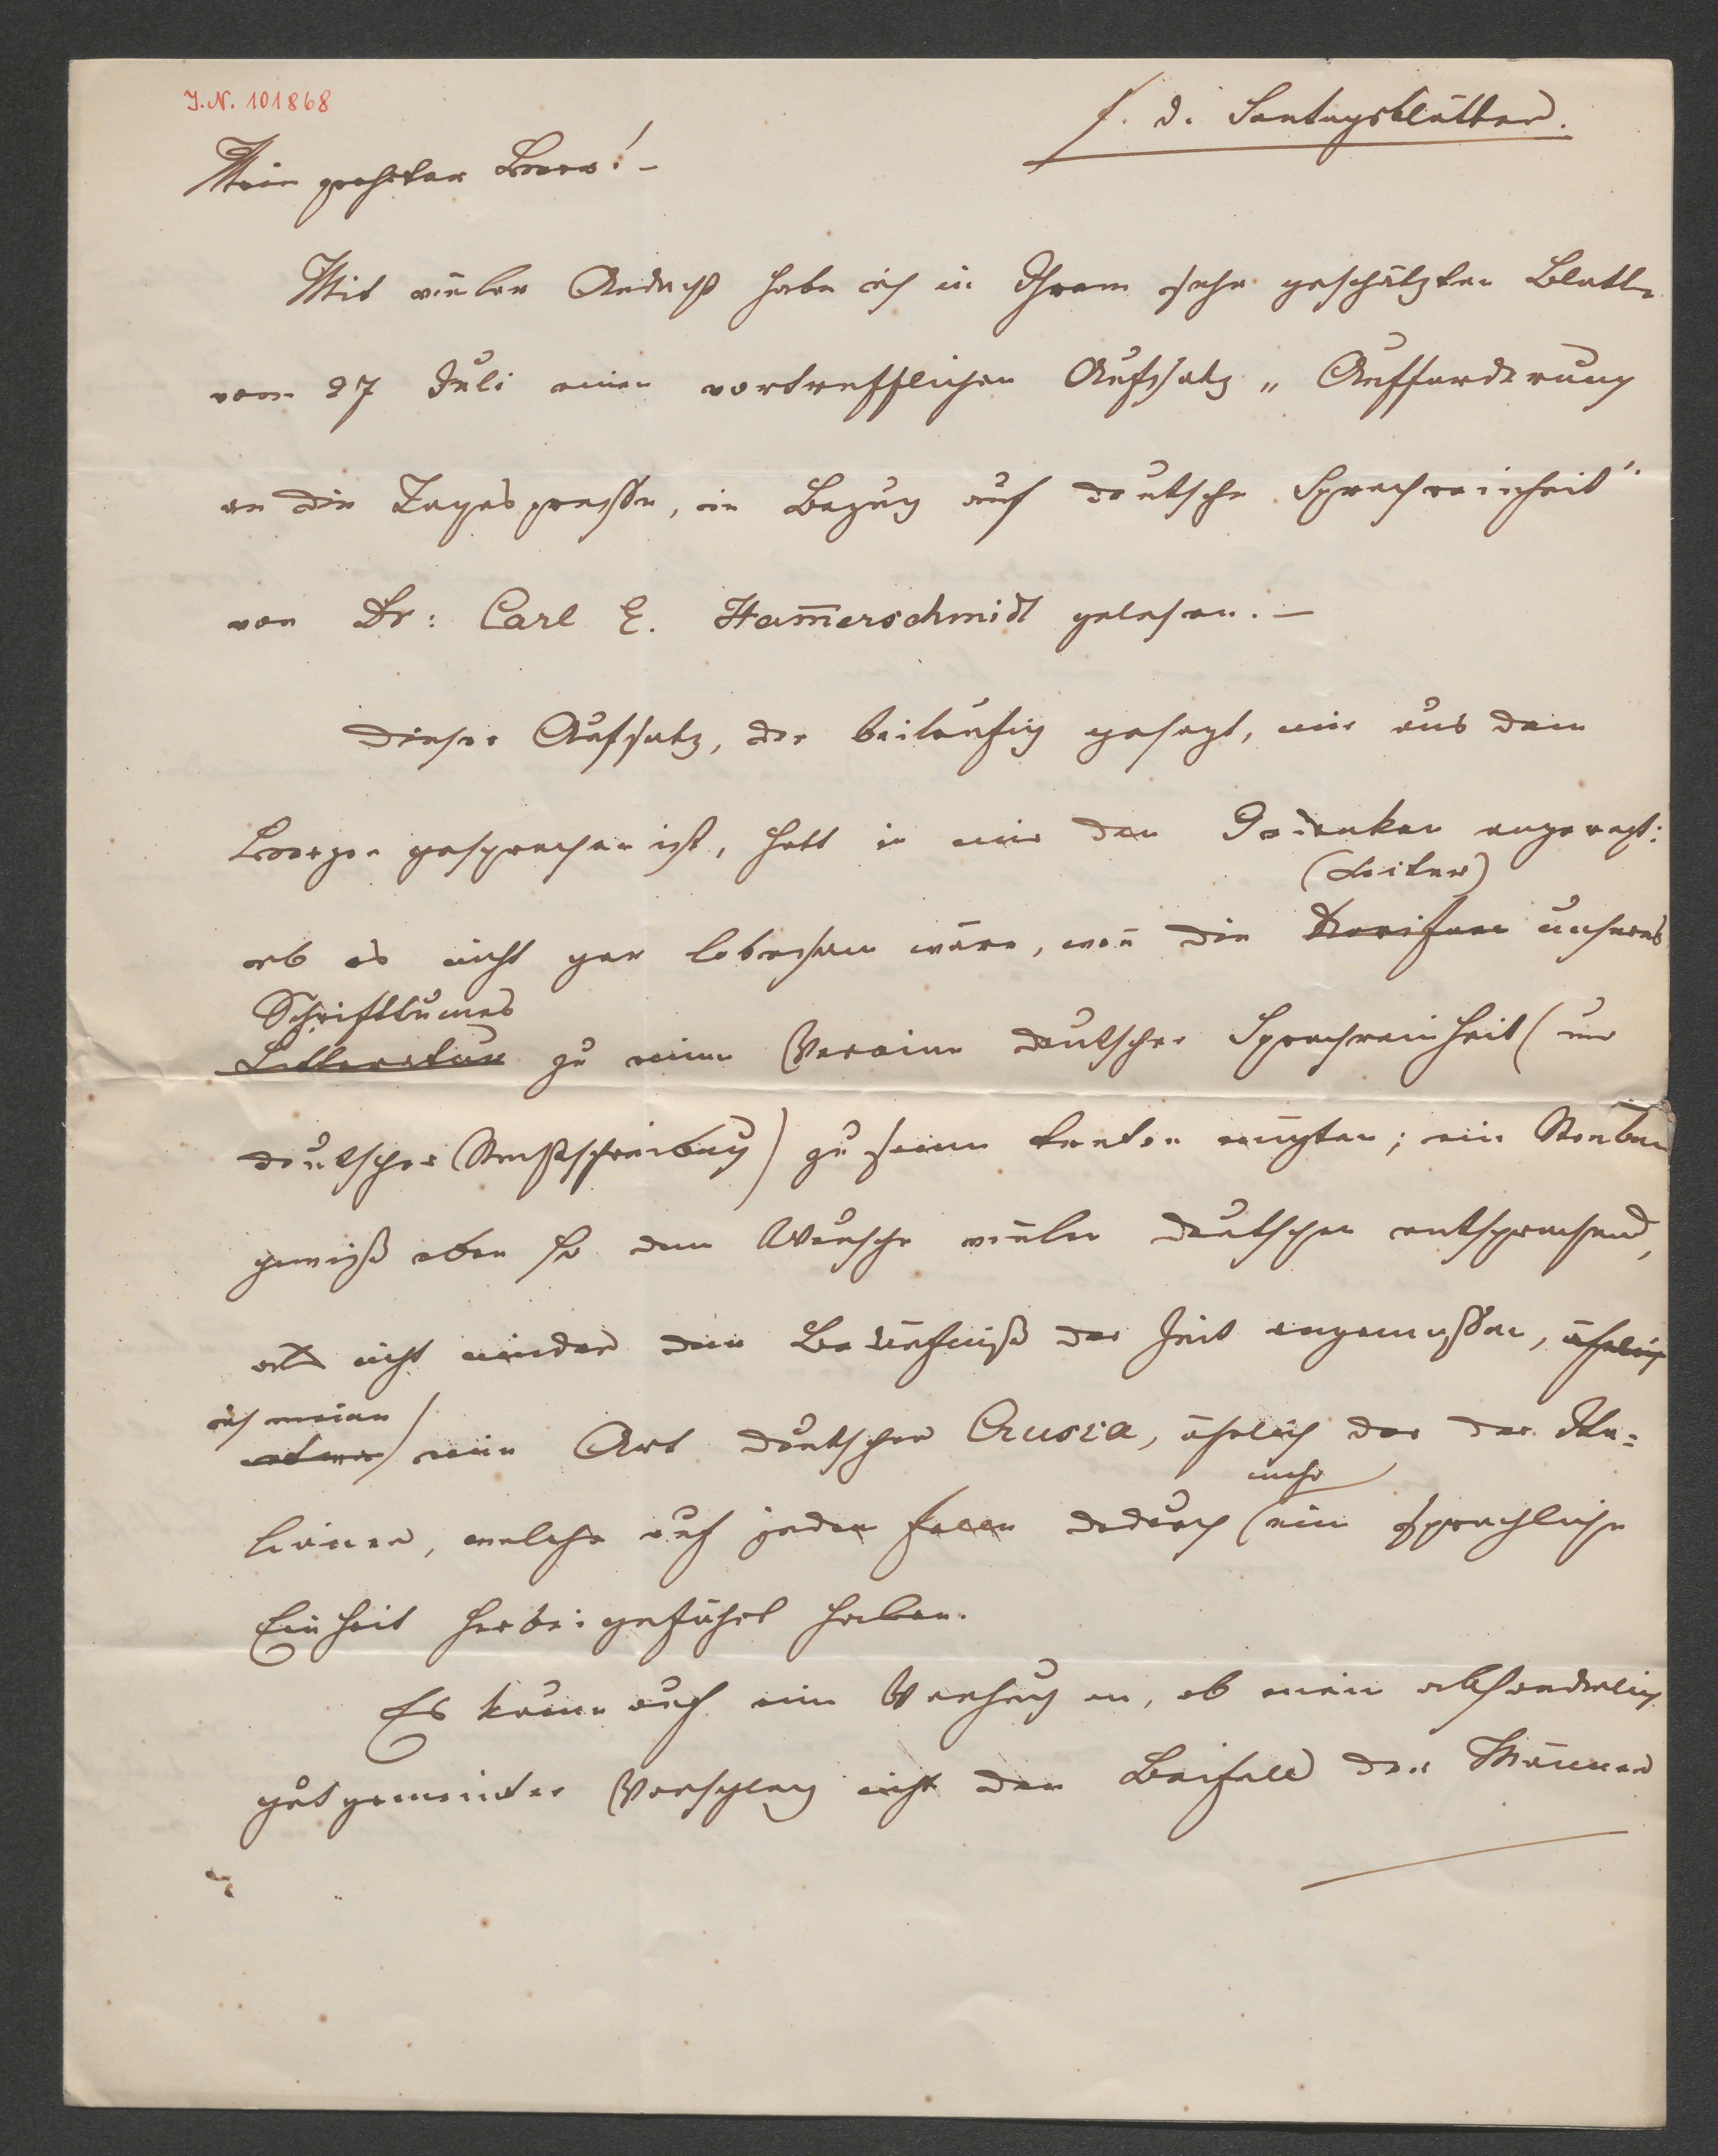 I.N. 101868
f. d. Sontagsblätter.
Mein geehrter Herr! –
Mit vieler Andacht habe ich in Ihrem sehr geschätzten Blatte
vom 27 Juli einen vortrefflichen Aufsatz „ Aufforderung
an die Tagespresse, in Bezug auf deutsche Sprachreinheit“
von Dr: Carl E. Ham̅erschmidt gelesen. –
Dieser Aufsatz, der beiläufig gesagt, mir aus dem
Herzen gesprochen ist, hatt in mir den Gedanken angeregt:
(Leiter)
ob es nicht gar lobesam wäre, wen̅ die unseres
Schriftthumes
Litteratur zu einem Vereine deutscher Sprachreinheit (und
deutscher Rechtschreibung) zu samen treten mögten; ein Streben
gewiß eben so dem Wunsche vieler Deutschen entsprechend,
als nicht minder dem Bedürfniß der Zeit angemessen, ähnlich
ich meine
etwa eine Art deutscher Crusca, ähnlich der der Ita=
mehr
liener, welche auf jeden Fall dadurch eine sprachliche
Einheit herbei geführt haben.
Es käme auch ein Versuch an, ob mein absonderlich
gutgemeinter Vorschlag nicht den Beifall der Männer